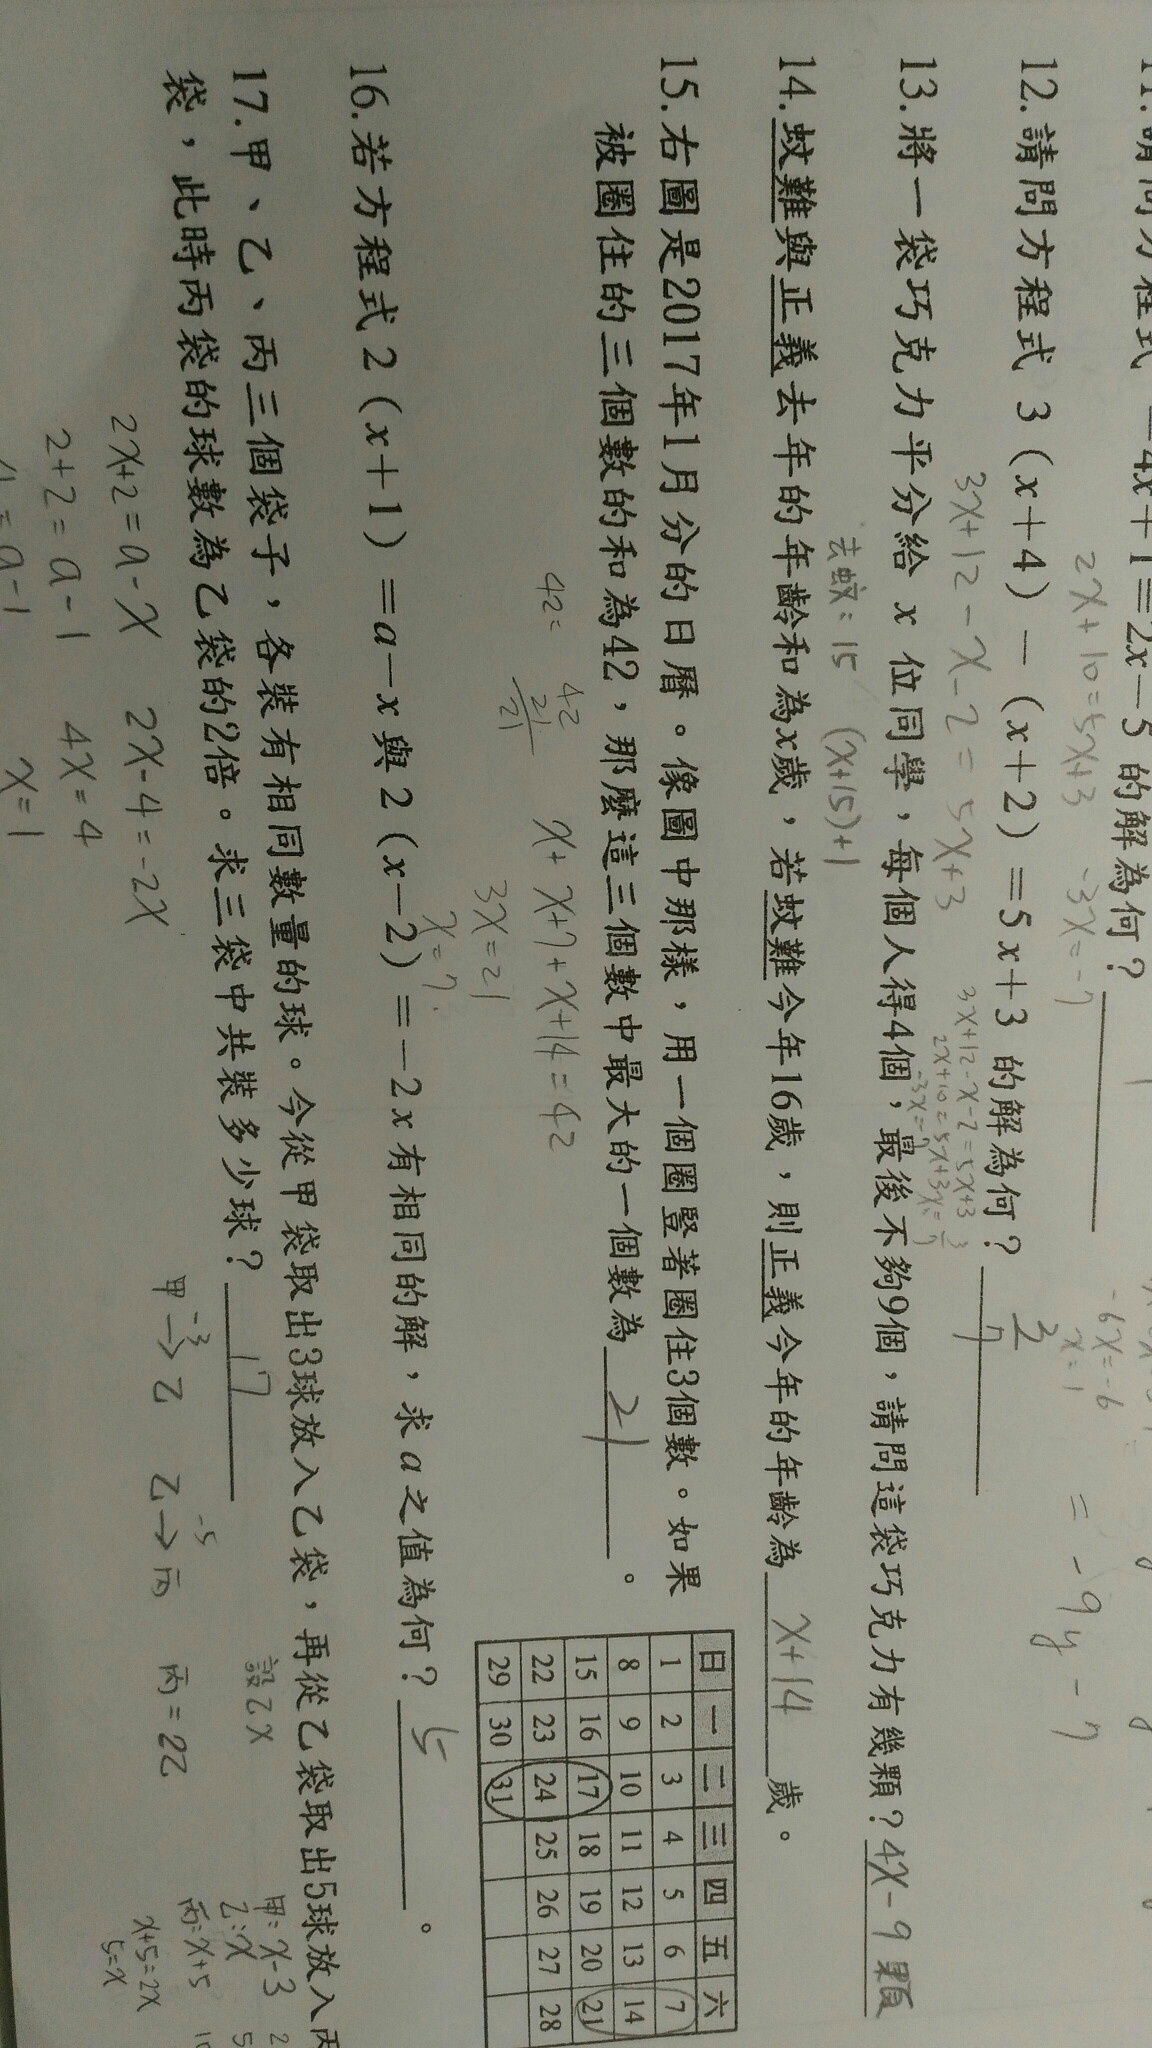 11.請問方程式 -4x+1=2x-5 的解為何？
-6x=-6
x=1
=-9y-7
2x+10=5x+3
-3x=-7
12.請問方程式 3(x+4)-(x+2)=5x+3 的解為何？
3x+12-x-2=5x+3
3x+12-x-2=5x+3
2x+10=5x+3
13.將一袋巧克力平分給 x 位同學，每個人得4個，最後不夠9個，請問這袋巧克力有幾顆？4x-9顆
去蚊：15 (x+15)+1
14.蚊難與正義去年的年齡和為x歲，若蚊難今年16歲，則正義今年的年齡為 x+14 歲。
15.右圖是2017年1月分的日曆。像圖中那樣，用一個圈豎著圈住3個數。如果
被圈住的三個數的和為42，那麼這三個數中最大的一個數為 21 。
日 一 二 三 四 五 六
1 2 3 4 5 6 7
8 9 10 11 12 13 14
15 16 17 18 19 20 21
22 23 24 25 26 27 28
29 30 31
42=
42
21
21
x+x+7+x+14=42
3x=21
x=7
16.若方程式 2(x+1)=a-x與2(x-2)=-2x有相同的解，求a之值為何？ 5 。
17.甲、乙、丙三個袋子，各裝有相同數量的球。今從甲袋取出3球放入乙袋，再從乙袋取出5球放入丙
袋，此時丙袋的球數為乙袋的2倍。求三袋中共裝多少球？ 17
設乙x
甲→乙 乙→丙 丙=2乙
-3 -5
甲：x-3
乙：x
丙：x+5
x+5=2x
5=x
2x+2=a-x 2x-4=-2x
2+2=a-1 4x=4
x=1